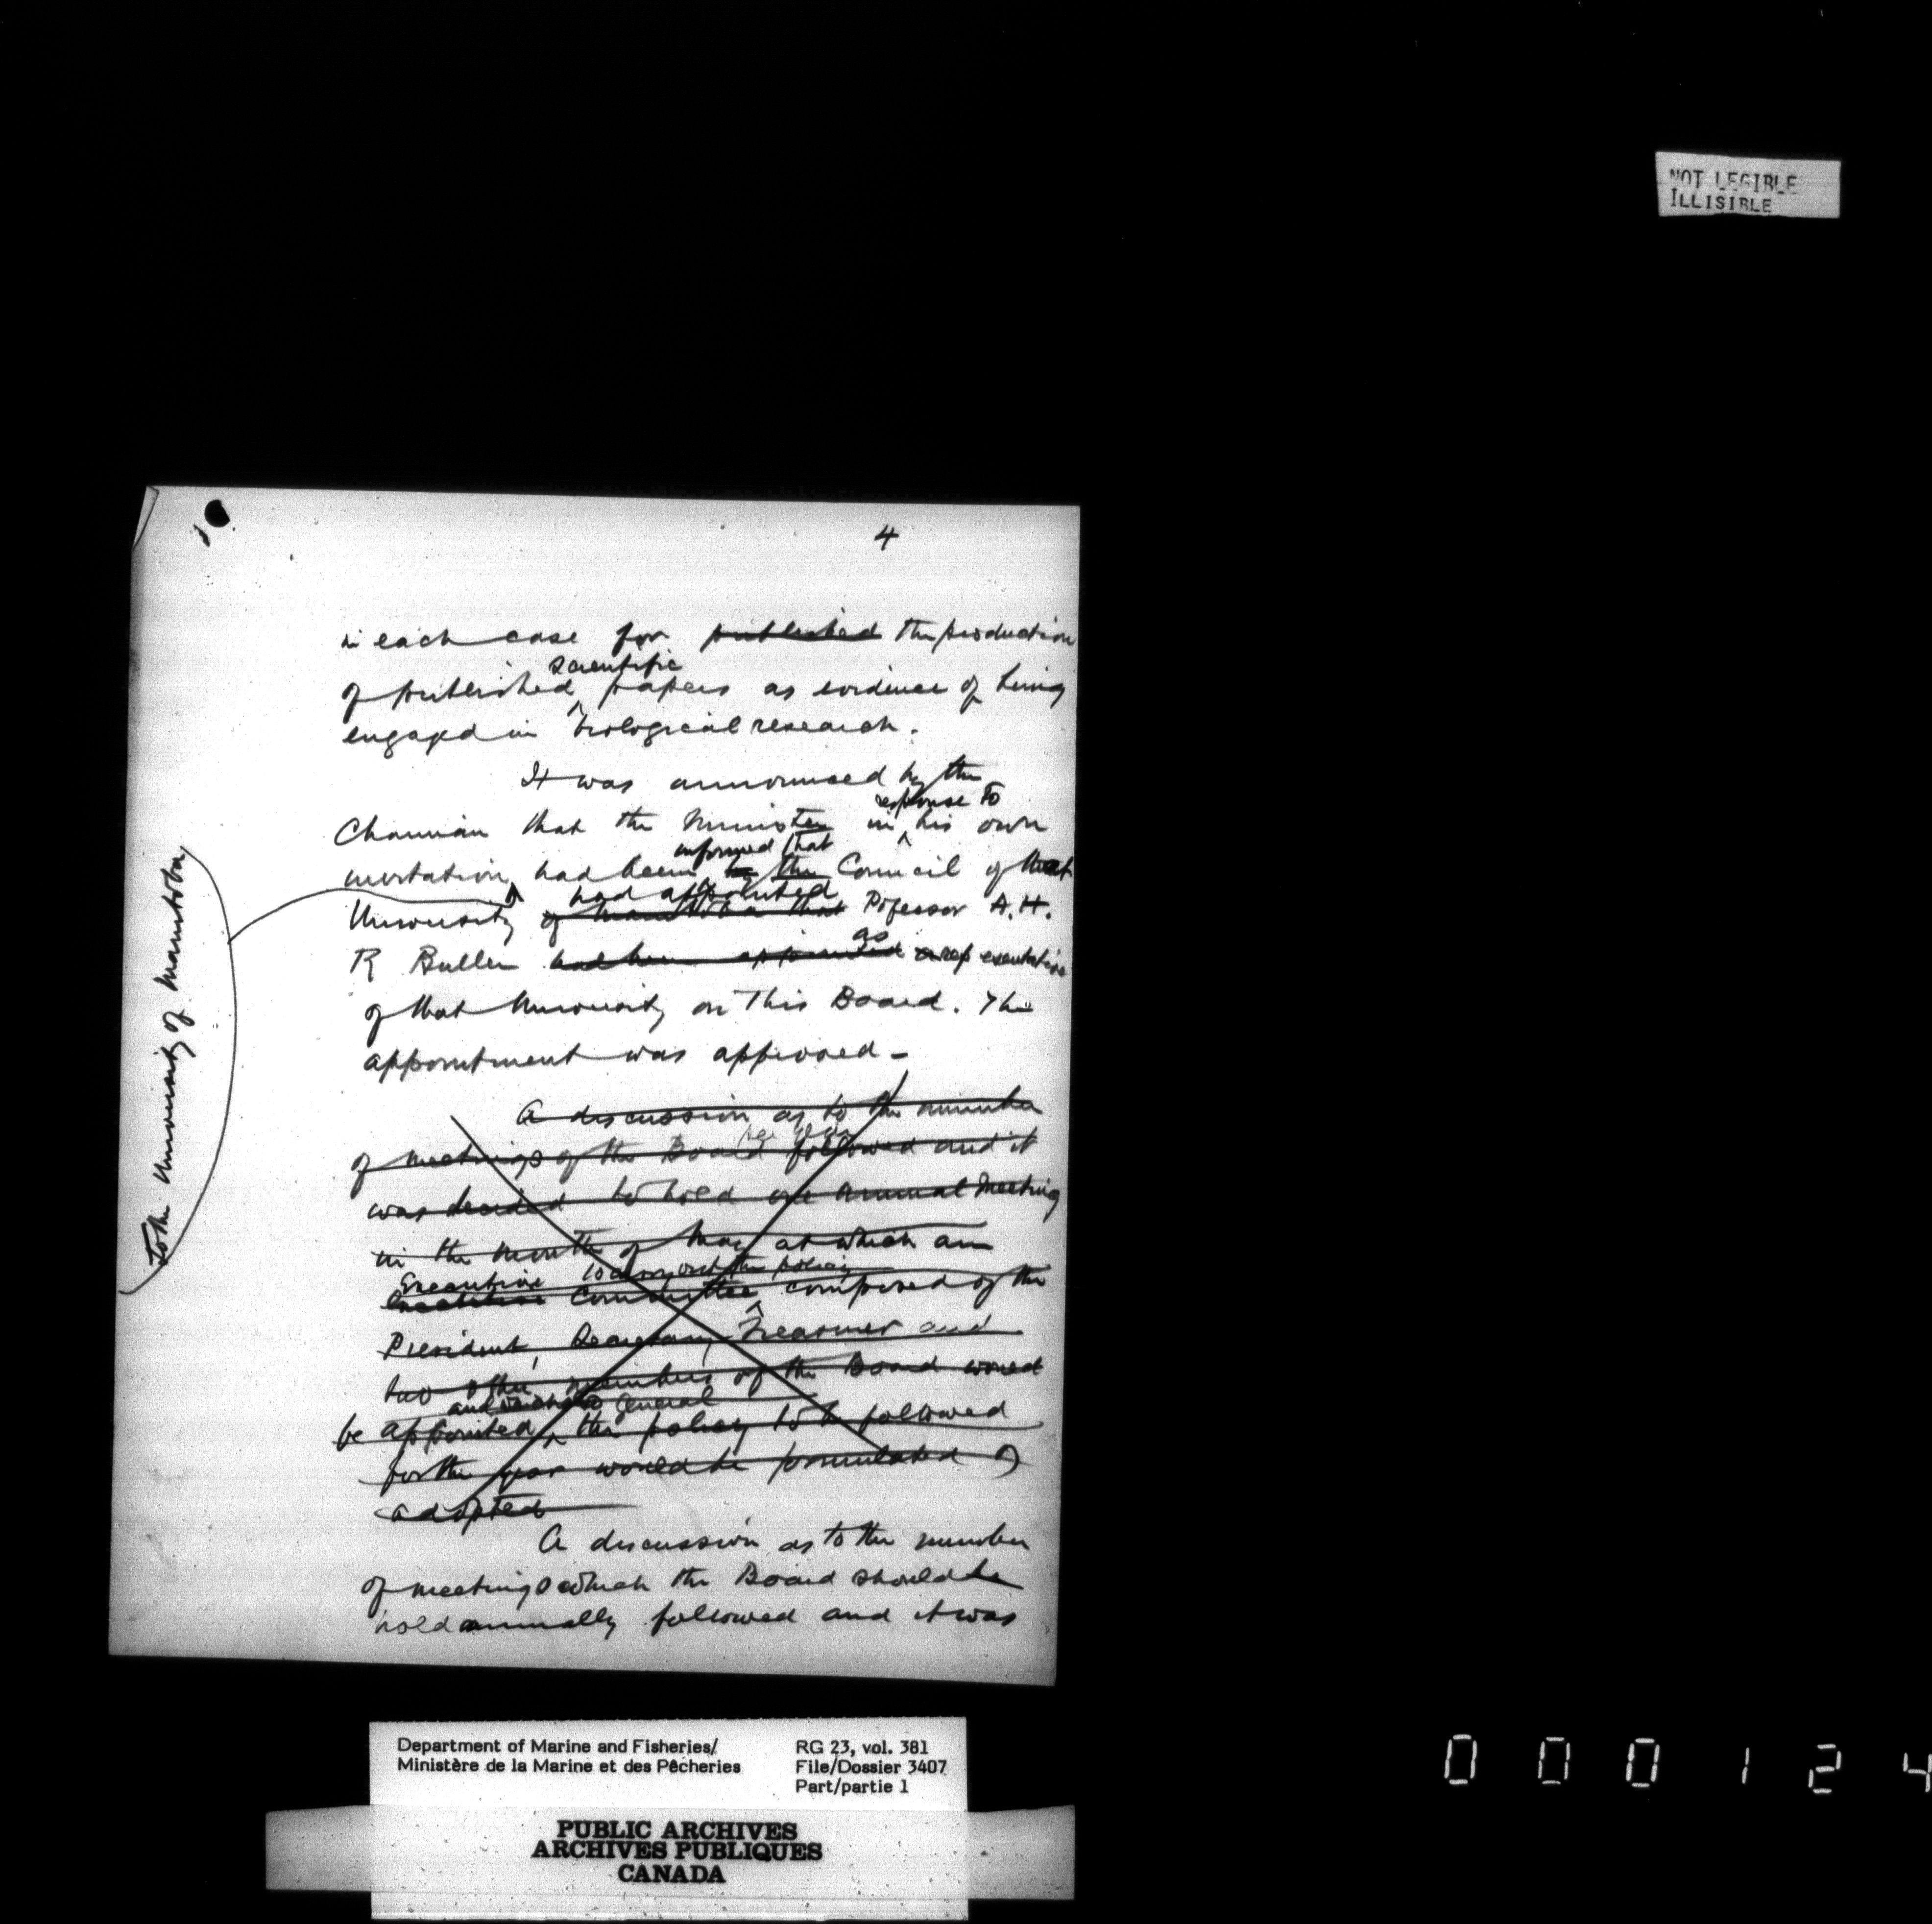 NOT LEGIBLE
ILLISIBLE
4
in each case for published the production
scientific
of published papers as evidence of being
engaged in biological research.
It was announced by the
response to
Chairman that the Minister in his own
informed that
invitation had been by the Council of that
had appointed
University of Manitoba that Professor A.H.
as
R Buller had been appointed a representative
of that University on this Board. The
appointment was approved -
to the University of Manitoba,
A discussion as to the number
per year
of meetings of the Board followed and it
was decided to hold one annual meeting
in the month of May at which an
Executive to carry out the policy
Executive Committee composed of the
President, Secretary, Treasurer and
two other members of the Board would
and General
be appointed the policy to be followed
for the year would be formulated &
adopted
A discussion as to the number
of meetings which the Board should be
hold annually followed and it was
Department of Marine and Fisheries/
Ministère de la Marine et des Pêcheries
RG 23, vol. 381
File/Dossier 3407
Part/partie 1
PUBLIC ARCHIVES
ARCHIVES PUBLIQUES
CANADA
0 0 0 1 2 4